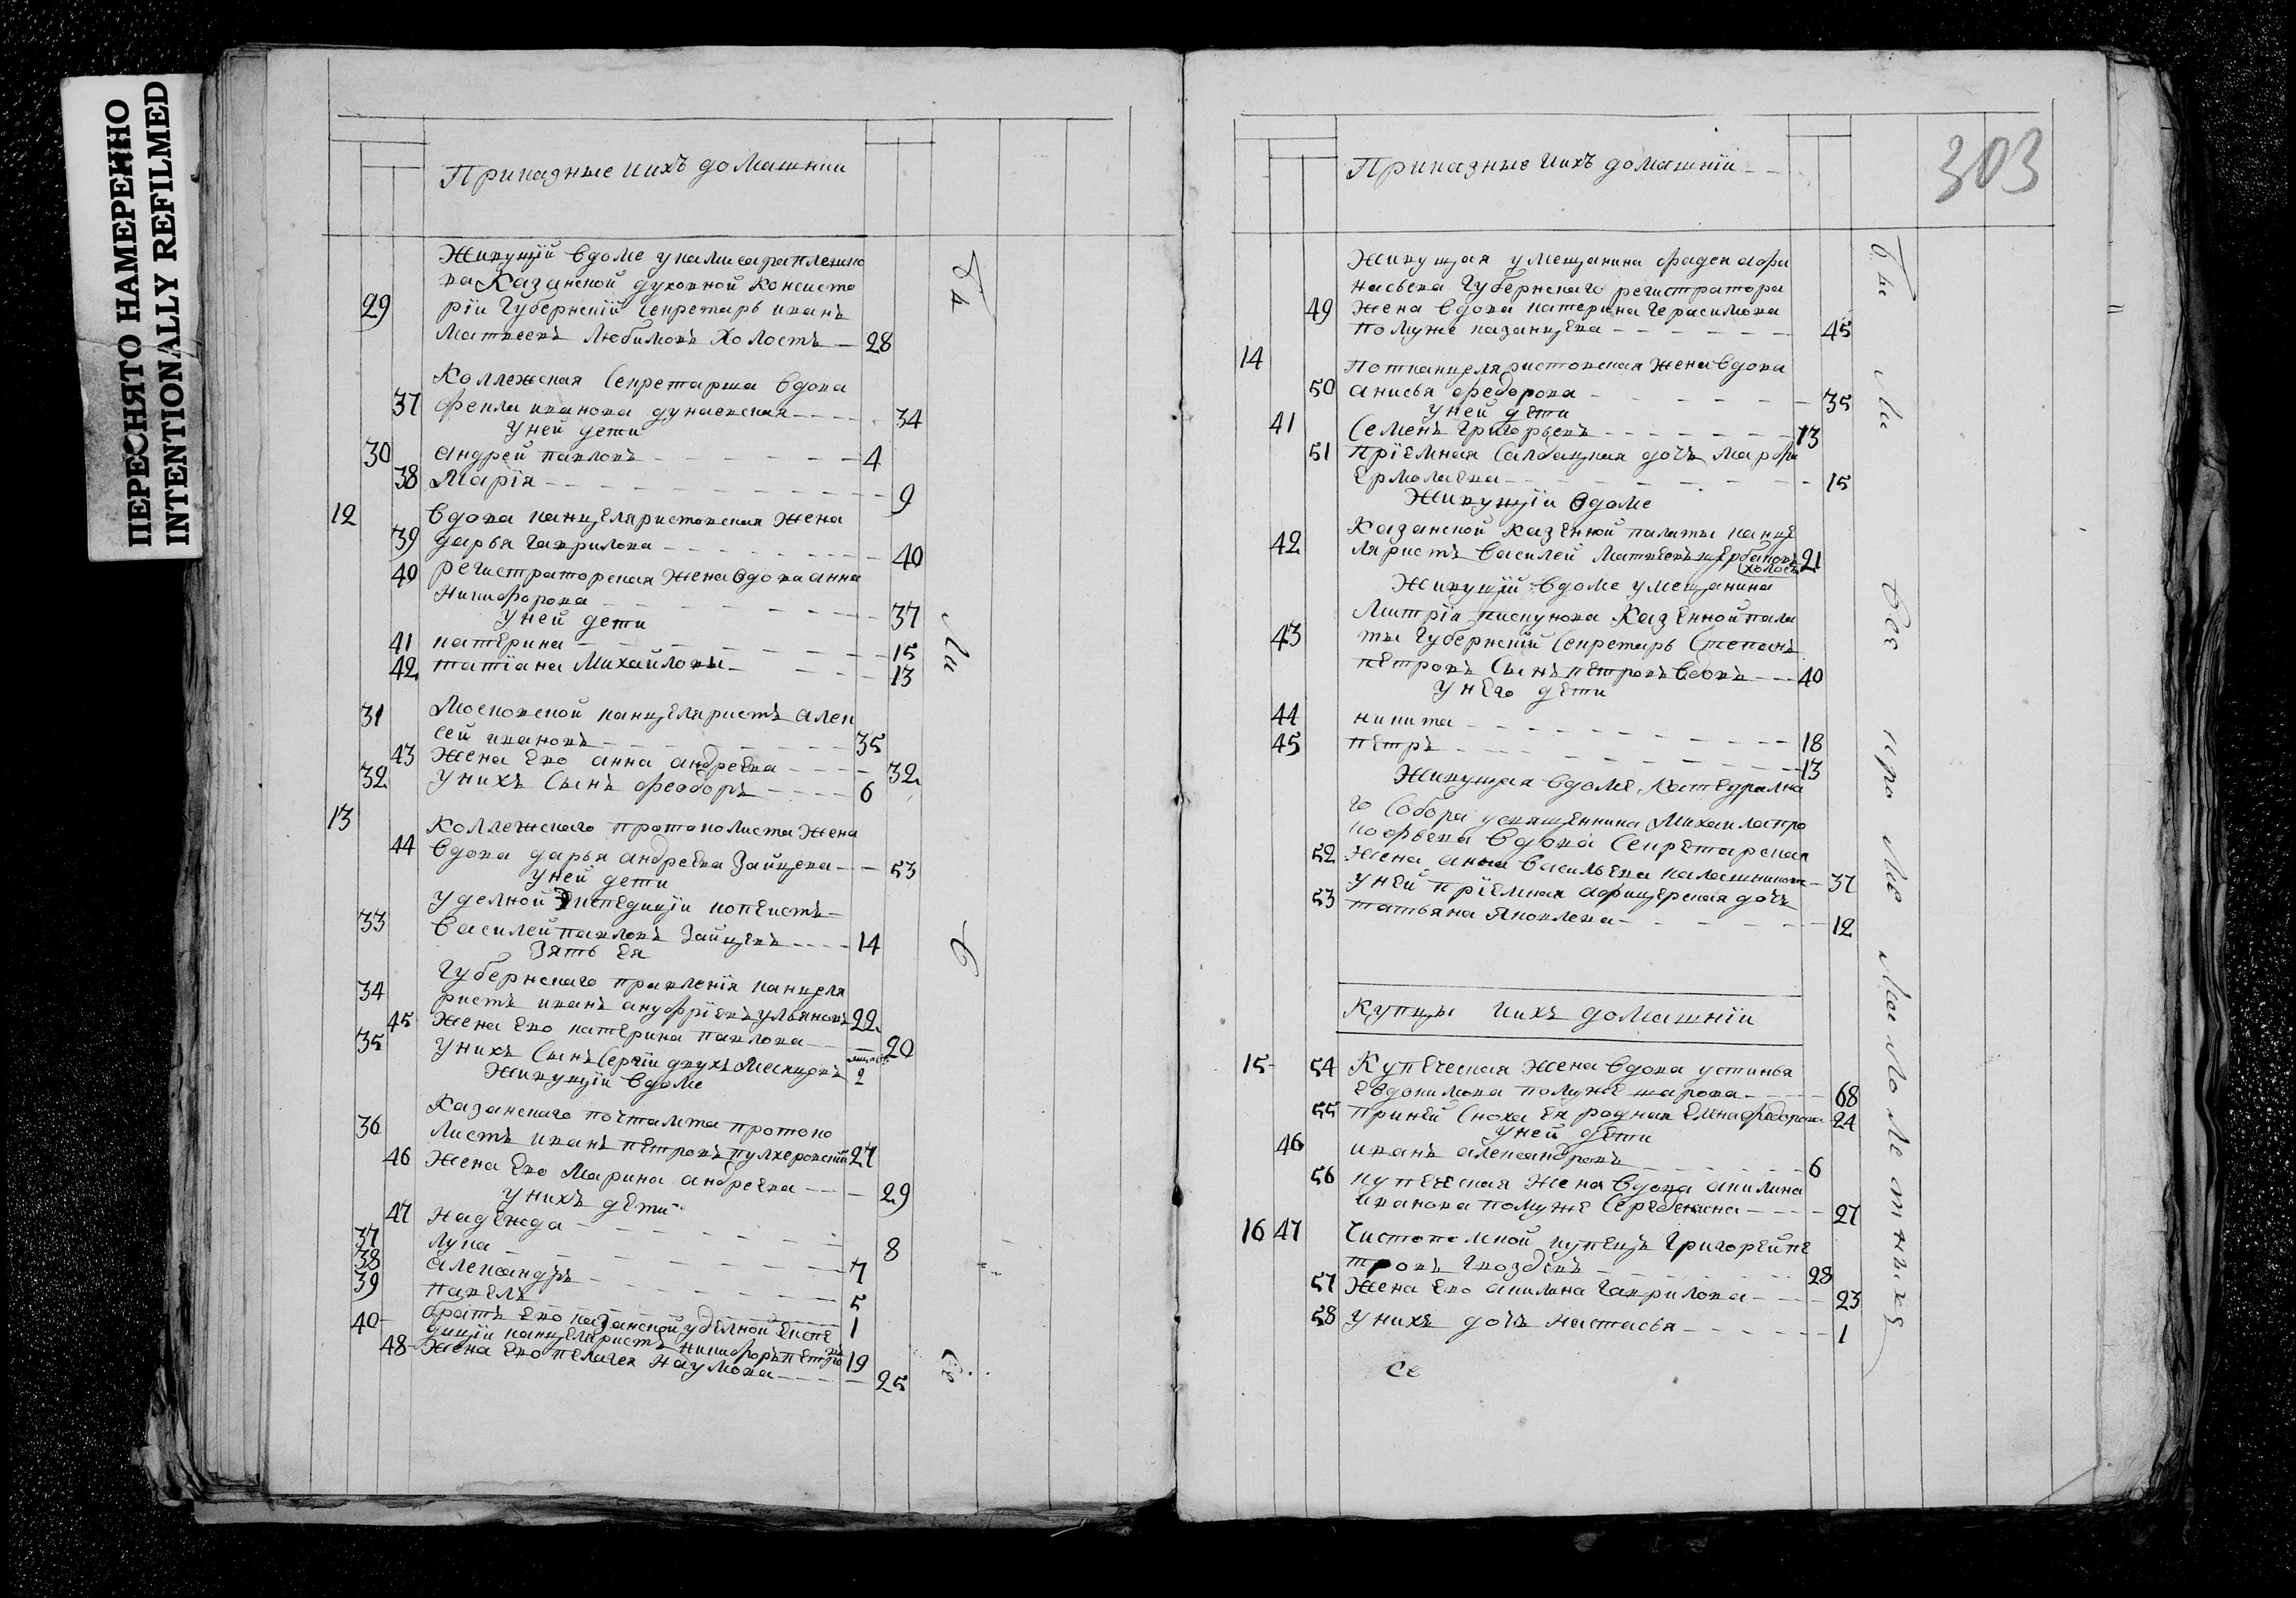 ПЕРЕСНЯТО НАМЕРЕННО
INTENTIONALLY REFILMED
Приказные иихъ домашнии
Живущiй вдоме
ка Казанской духовной консисто
29 рiи Губернскiй Секретарь иванъ
Матвеевъ Любимовъ Холостъ — 28
Коллежская Секретарша вдова
37 фекла иванова дунаевская 34
Уней дети
30 андрей павловъ 4
38 Марiя 9
12 вдова канцеляристовская жена
39 дарья Гаврилова 40
40 регистраторская жена вдова анна
Никифорова 37
Уней дети
41 катерина 15
42 татiана Михайловы 13
31 Московской канцеляристъ алек
сей ивановъ 35
43 Жена Ево анна андреЕва 32
32 Унихъ Сынъ феодоръ 6
13 Коллежскаго протоколиста жена
44 вдова дарья андреЕва Зайцева 53
Уней дети
Уделной Экспедицiи копеистъ
33 Василей павловъ Зайцевъ 14
Зять Ея
Губернскаго правленiя канцеля
34 ристъ иванъ ануфрiевъ ульяновъ 22
45 Жена Ево катерина павлова 20
35 Унихъ Сынъ Сергiй двухъ Месяцовъ 2
Живущiй вдоме
Казанскаго почтамта протоко
36 листъ иванъ петровъ пулхеровскiй 27
46 Жена Ево Марина андреЕва 29
Унихъ дети
47 надежда 8
37 лука 7
38 александръ 5
39 павелъ 1
40 братъ Ево казанской уделной Експе
дицiи канцеляристъ никифоръ петровъ 19
48 Жена Ево пелагея Наумова 25
Приказные иихъ домашнiи
303
Живущая умещанина фадея афа
насьева Губернскаго регистратора
49 жена вдова катерина Герасимова
помуже казанцева 45
14 Поткацеляристовская жена вдова
50 анисья федорова 35
Уней дети
41 Семенъ Григорьевъ 13
51 Прiемная Салдацкая дочь марфа
Ермолаева 15
Живущiи вдоме
Казанской казенной палаты канце
42 ляристъ Василей Матвеевъ щербаковъ 21
холостъ
Живущiй вдоме умещанина
Митрiя пискунова Казенной пала
43 ты Губернскiй Секретарь Степанъ
петровъ Сынъ петровъ вдовъ 40
Унего дети
44 никита 18
45 петръ 13
Живущая вдоме Катедрална
го Собора усвященника Михаила про
кофьева вдова Секретарская
52 жена анна Васильева калашникова 37
Уней прiемная афицерская дочь
53 татьяна Яковлева 12
Купцы иихъ домашнiи
15 54 Купеческая жена вдова устинья
Евдокимова помуже шарова 68
55 Приней Сноха Ея родная Елена федорова 24
Уней дети
46 иванъ александровъ 6
56 купеческая жена вдова акилина
иванова помуже Серебенина 27
16 47 Чистополской купецъ Григорей пе
тровъ Гвоздевъ 28
57 Жена Ево акилина Гаврилова 23
58 Унихъ дочь настасья 1
Се